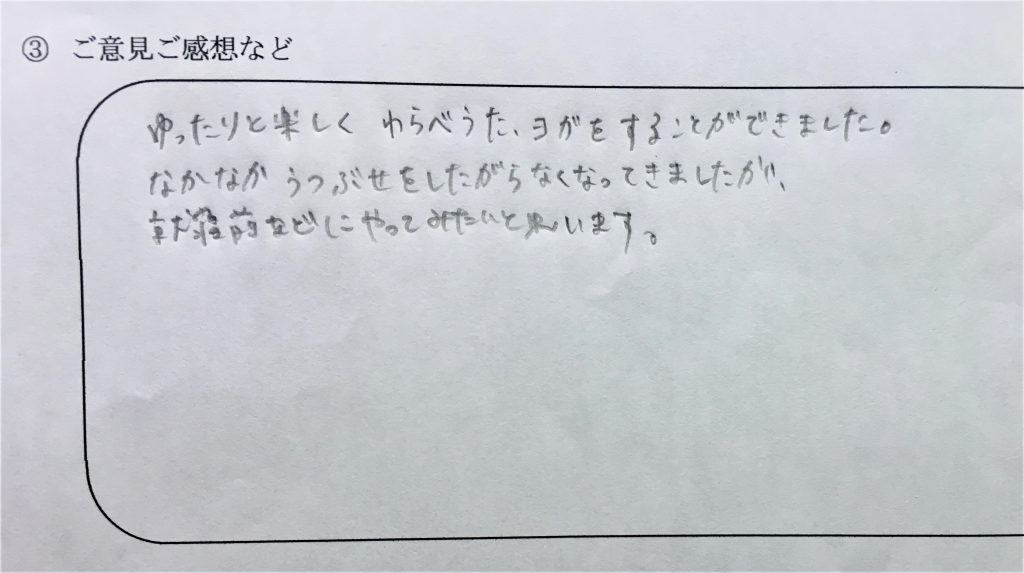 ③ ご意見ご感想など
ゆったりと楽しく わらべうた、ヨガをすることができました。
なかなか うつぶせをしたがらなくなってきましたが、
就寝前などにやってみたいと思います。